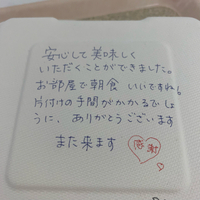 安心して美味しく
いただくことができました。
お部屋で朝食 いいですね。
片付けの手間がかかるでしょ
うに、ありがとうございます
また来ます
感謝